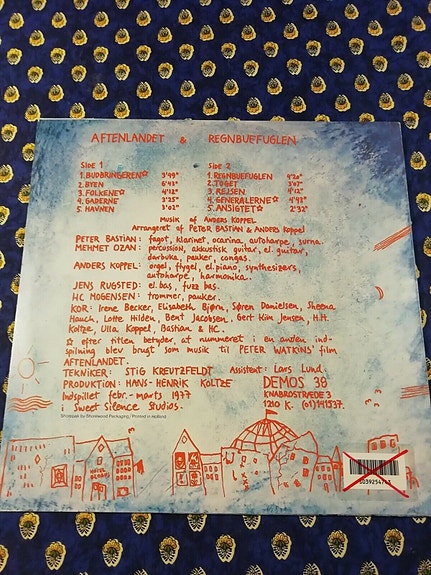 AFTENLANDET & REGNBUEFUGLEN
SIDE 1
1. BUDBRINGEREN☆ 3'49"
2. BYEN 6'43"
3. FOLKENE☆ 4'12"
4. GADERNE 3'25"
5. HAVNEN 3'02"
SIDE 2
1. REGNBUEFUGLEN 4'20"
2. TOGET 3'07"
3. REJSEN 4'12"
4. GENERALERNE☆ 4'43"
5. ANSIGTET☆ 2'32"
Musik af ANDERS KOPPEL
Arrangeret af PETER BASTIAN & ANDERS KOPPEL
PETER BASTIAN: fagot, klarinet, ocarina, autoharpe, surna.
MEHMET OZAN: percussion, akkustisk guitar, el. guitar,
darbuka, pauker, congas.
ANDERS KOPPEL: orgel, flygel, el. piano, synthesizers,
autoharpe, harmonika.
JENS RUGSTED: el. bas, fuzz bas.
HC MOGENSEN: trommer, pauker.
KOR: Irene Becker, Elisabeth Bjørn, Søren Danielsen, Sheena
Hauch, Lotte Hilden, Bent Jacobsen, Gert Kim Jensen, H.H.
Koltze, Ulla Koppel, Bastian & HC.
☆ efter titlen betyder, at nummeret i en anden ind-
spilning blev brugt som musik til PETER WATKINS' film
AFTENLANDET.
TEKNIKER: STIG KREUTZFELDT Assistent: Lars Lund.
PRODUKTION: HANS-HENRIK KOLTZE
Indspillet febr.-marts 1977
i Sweet Silence Studios.
DEMOS 38
KNABROSTRÆDE 3
1210 K. (01) 141537.
Shorepak by Shorewood Packaging/Printed in Holland
HOTEL